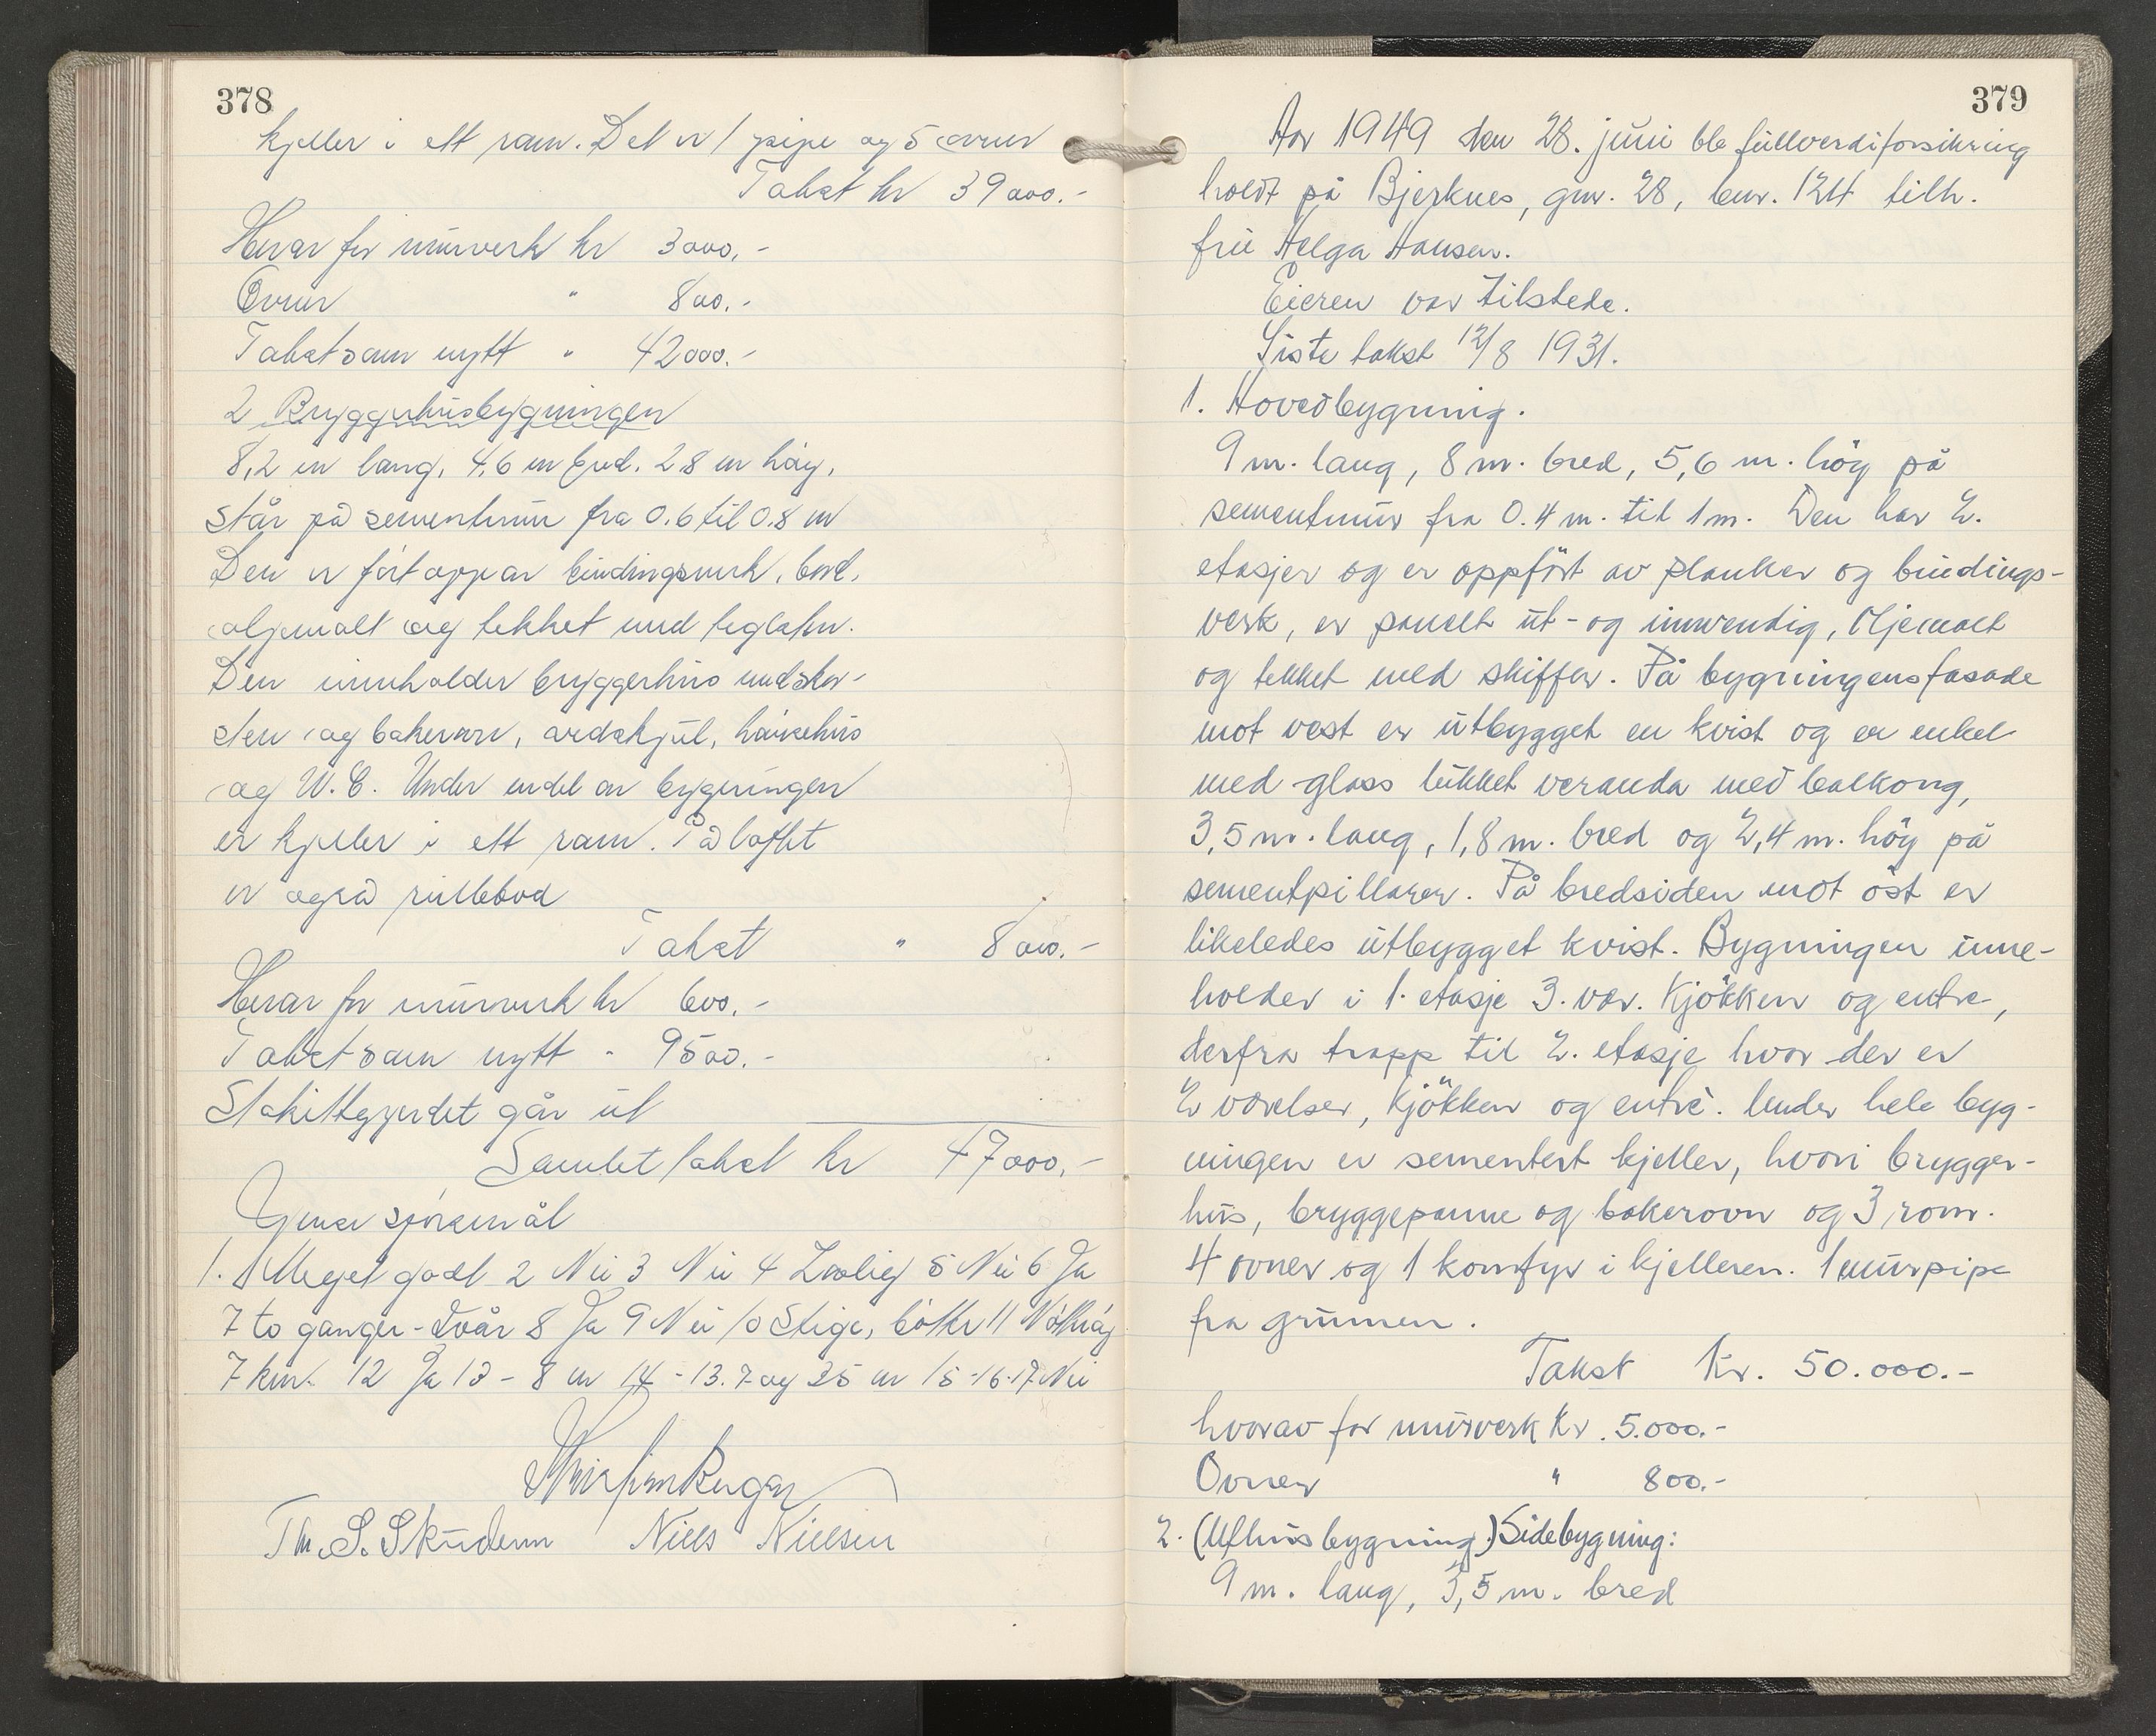 378
kjeller i ett rom. Det er 1 pipe og 5 ovner
Takst kr 39000.-
Herav for murverk kr 3000,-
Ovner " 800.-
Takst som nytt " 42000.-
2 Bryggerhusbygningen
8,2 m lang, 4,6 m bred. 2.8 m høy,
står på sementmur fra 0.6 til 0.8 m
Den er ført opp av bindingsverk, bord,
oljemalt og tekket med teglsten.
Den inneholder bryggerhus med skor-
sten og bakerovn, vedskjul, hønsehus
og W.C. Under endel av bygningen
er kjeller i ett rom. På loftet
er også rullebod
Takst " 8000.-
Herav for murverk kr 600,-
Takst som nytt " 9500.-
Stakittgjerdet går ut
Samlet takst kr 47000,-
spørsmål
1. Meget godt 2 Nei 3 Nei 4 Lovlig 5 Nei 6 Ja
7 to ganger - året 8 Ja 9 Nei 10 Stige, bøtte 11 Nøtterøy
7 km. 12 Ja 13 - 8 m 14 - 13.7 og 25 m 15-16-17 Nei
Th. S. Skudem Niels Nielsen
379
Aar 1949 den 28. juni ble fullverdiforsikring
holdt på Bjerknes, gnr. 28, bnr. 124 tilh.
frü Helga Hansen.
Eieren var tilstede.
Siste takst 12/8 1931.
1. Hovedbygning.
9 m. lang, 8 m. bred, 5,6 m. høg på
sementmur fra 0.4 m. til 1 m. Den har 2.
etasjer og er oppført av planker og bindings-
verk, er panelt ut- og innvendig, oljemalt
og tekket med skiffer. På bygningens fasade
mot vest er utbygget en kvist og en enkel
med glass lukket veranda med balkong,
3,5 m. lang, 1,8 m. bred og 2,4 m. høg på
sementpillarer. På bredsiden mot øst er
likeledes utbygget kvist. Bygningen inne-
holder i 1. etasje 3. vær. Kjøkken og entre,
derfra trapp til 2. etasje hvor der er
2 værelser, kjøkken og entré. Under hele byg-
ningen er sementert kjeller, hvori brygger-
hus, bryggepanne og bakerovn og 3 rom.
4 ovner og 1 komfyr i kjelleren. 1 murpipe
fra grunnen.
Takst Kr. 50.000.-
hvorav for murverk Kr. 5.000.-
Ovner " 800.-
2. (Uthusbygning.) Sidebygning:
9 m. lang, 3,5 m. bred